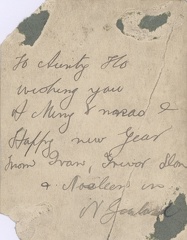 To Aunty Flo
wishing you
A Merry xmas &
Happy new Year
from Ivan, Trevor
& Noeleen in